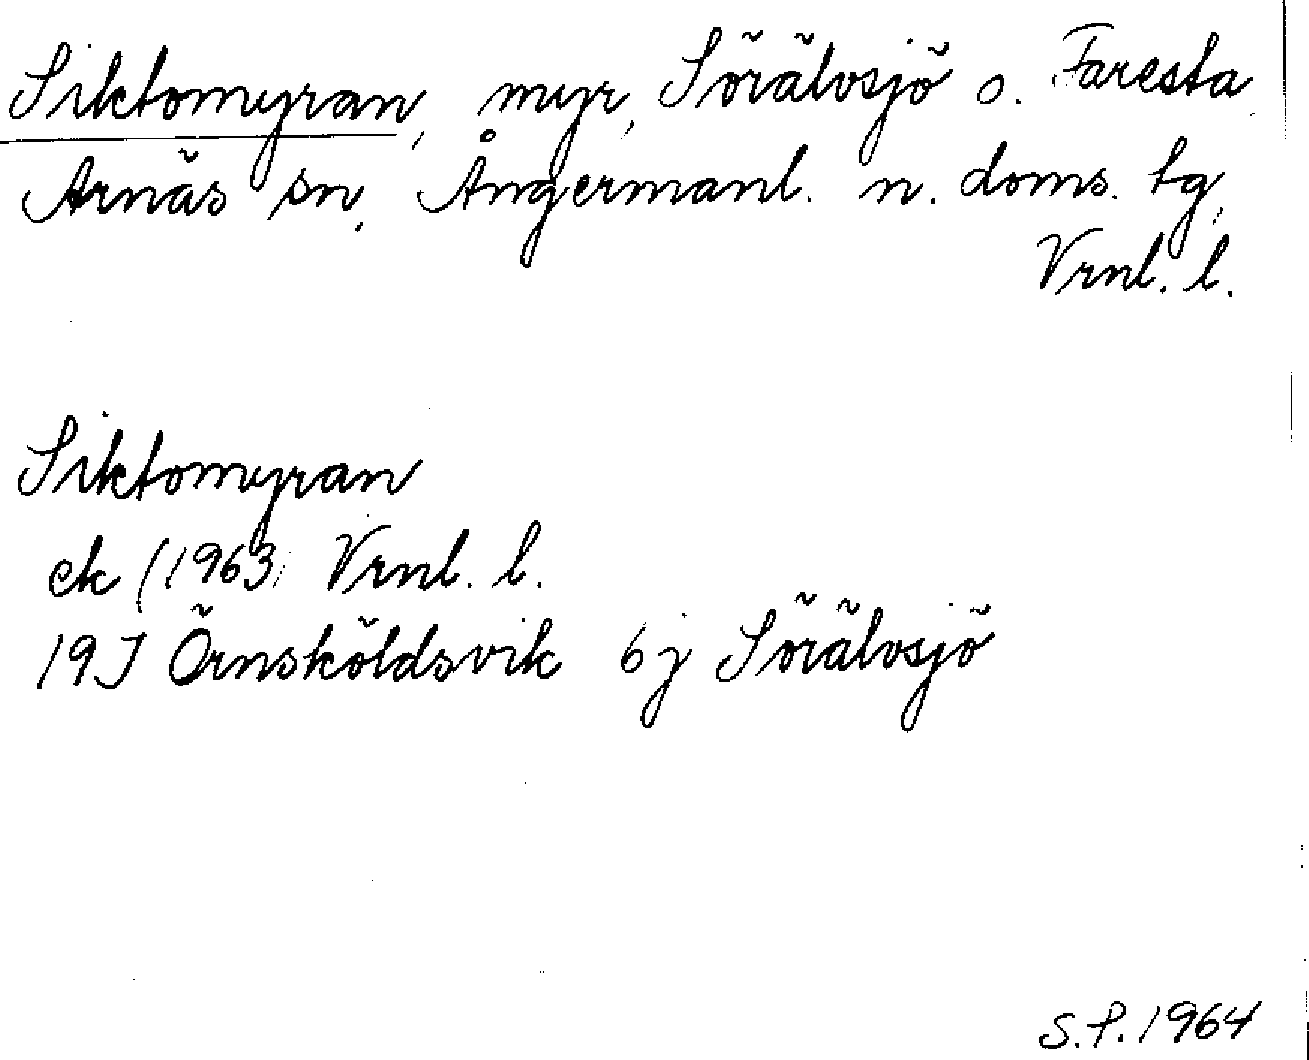 Siktomyran, myr, Sörälvsjö o. Faresta
Arnäs sn, Ångermanl. n. doms. tg,
Vrnl. l.
Siktomyran
ek (1963) Vrnl. l.
19J Örnsköldsvik 6j Sörälvsjö
S.P. 1964